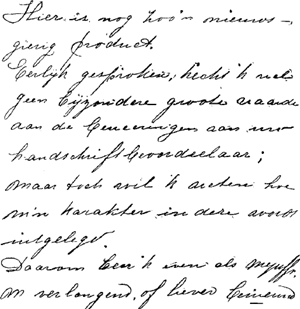 Hier is nog zoo'n nieuws-
gierig product.
Eerlijk gesproken, hecht ik wel
geen bijzondere groote waarde
aan de meeningen van uw
handschriftbeoordeelaar;
maar toch wil ik weten hoe
m'n karakter in deze wordt
uitgelegd.
Daarom ben ik even als mejuffr.
M verlangend, of liever